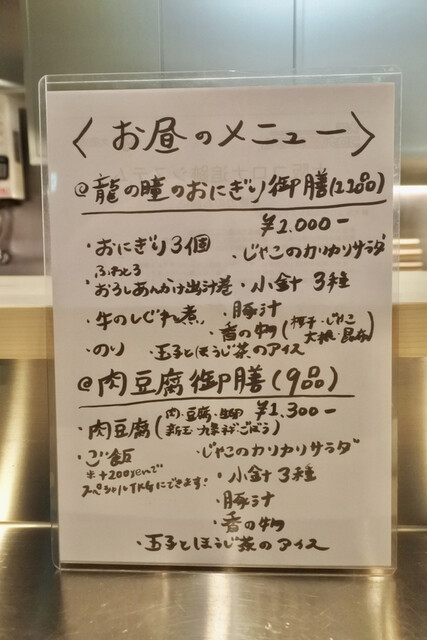 〈お昼のメニュー〉
@龍の瞳のおにぎり御膳(12品)
¥2.000-
・おにぎり3個 ・じゃこのカリカリサラダ
ふわとろ
・おろしあんかけ出汁巻 ・小鉢 3種
・牛のしぐれ煮 ・豚汁
・香の物(柚子・じゃこ 大根・昆布)
・のり ・玉子とほうじ茶のアイス
@肉豆腐御膳(9品)
¥1.300-
・肉豆腐(肉・豆腐・生卵 新玉・九条ネギ・ごぼう)
・ご飯 ・じゃこのカリカリサラダ
※+200yenで ・小鉢 3種
スペシャルTKGにできます!
・豚汁
・香の物
・玉子とほうじ茶のアイス